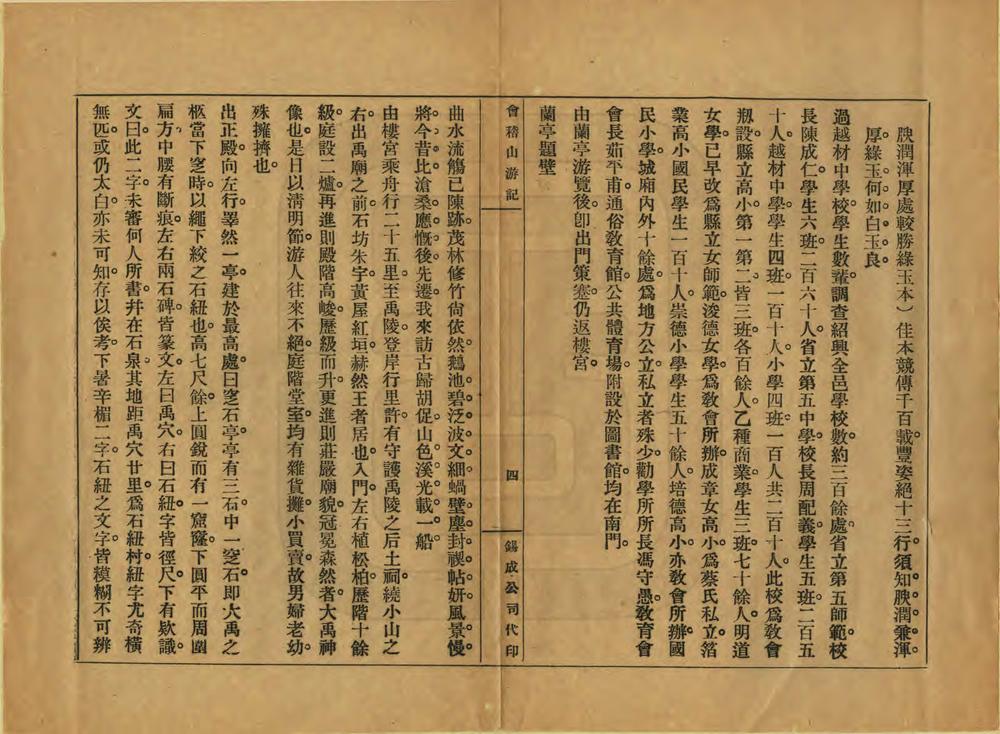 腴潤渾厚處較勝綠玉本）佳本競傳千百載。豐姿絕十三行。須知腴潤兼渾。
厚。綠玉何如白玉良。
過越材中學校。學生數輩。調查紹興全邑學校數。約三百餘處。省立第五師範。校
長陳成仁。學生六班。二百六十人。省立第五中學。校長周配義。學生五班。二百五
十人。越材中學。學生四班。一百十人。小學四班。一百人。共二百十人。此校爲教會
剏設。縣立高小。第一第二。皆三班。各百餘人。乙種商業。學生三班。七十餘人。明道
女學。已早改爲縣立女師範。浚德女學。爲教會所辦。成章女高小。爲蔡氏私立。箔
業高小。國民學生一百十人。崇德小學。學生五十餘人。培德高小。亦教會所辦。國
民小學。城廂內外十餘處。爲地方公立。私立者殊少。勸學所所長馮守愚。教育會
會長茹平甫。通俗教育館。公共體育場。附設於圖書館。均在南門。
由蘭亭游覽後。卽出門策蹇。仍返樓宮。
蘭亭題壁
會稽山游記
四
錫成公司代印
曲水流觴已陳跡。茂林修竹尙依然。鵝池。碧泛波文細。蝸壁塵封禊帖妍。風景慢。
將今昔比。滄桑應慨後先遷。我來訪古歸胡促。山色溪光載一船。
由樓宮乘舟。行二十五里。至禹陵登岸。行里許。有守護禹陵之后土祠。繞小山之
右。出禹廟之前。石坊朱字。黃屋紅垣。赫然王者居也。入門左右植松柏。歷階十餘
級。庭設二爐。再進則殿階高峻。歷級而升。更進則莊嚴廟貌。冠冕森然者。大禹神
像也。是日以淸明節。游人往來不絕。庭階堂室。均有雜貨攤小買賣。故男婦老幼。
殊擁擠也。
出正殿。向左行。睪然一亭。建於最高處。曰窆石亭。亭有三石。中一窆石。卽大禹之
柩當下窆時。以繩下絞之石紐也。高七尺餘。上圓銳而有一窟窿。下圓平而周圍
扁方。中腰有斷痕。左右兩石碑。皆篆文。左曰禹穴。右曰石紐。字皆徑尺。下有欵識。
文曰。此二字未審何人所書。幷在石泉。其地距禹穴廿里。爲石紐村。紐字尤奇橫
無匹。或仍太白。亦未可知。存以俟考。下署辛楣二字。石紐之文字。皆模糊不可辨